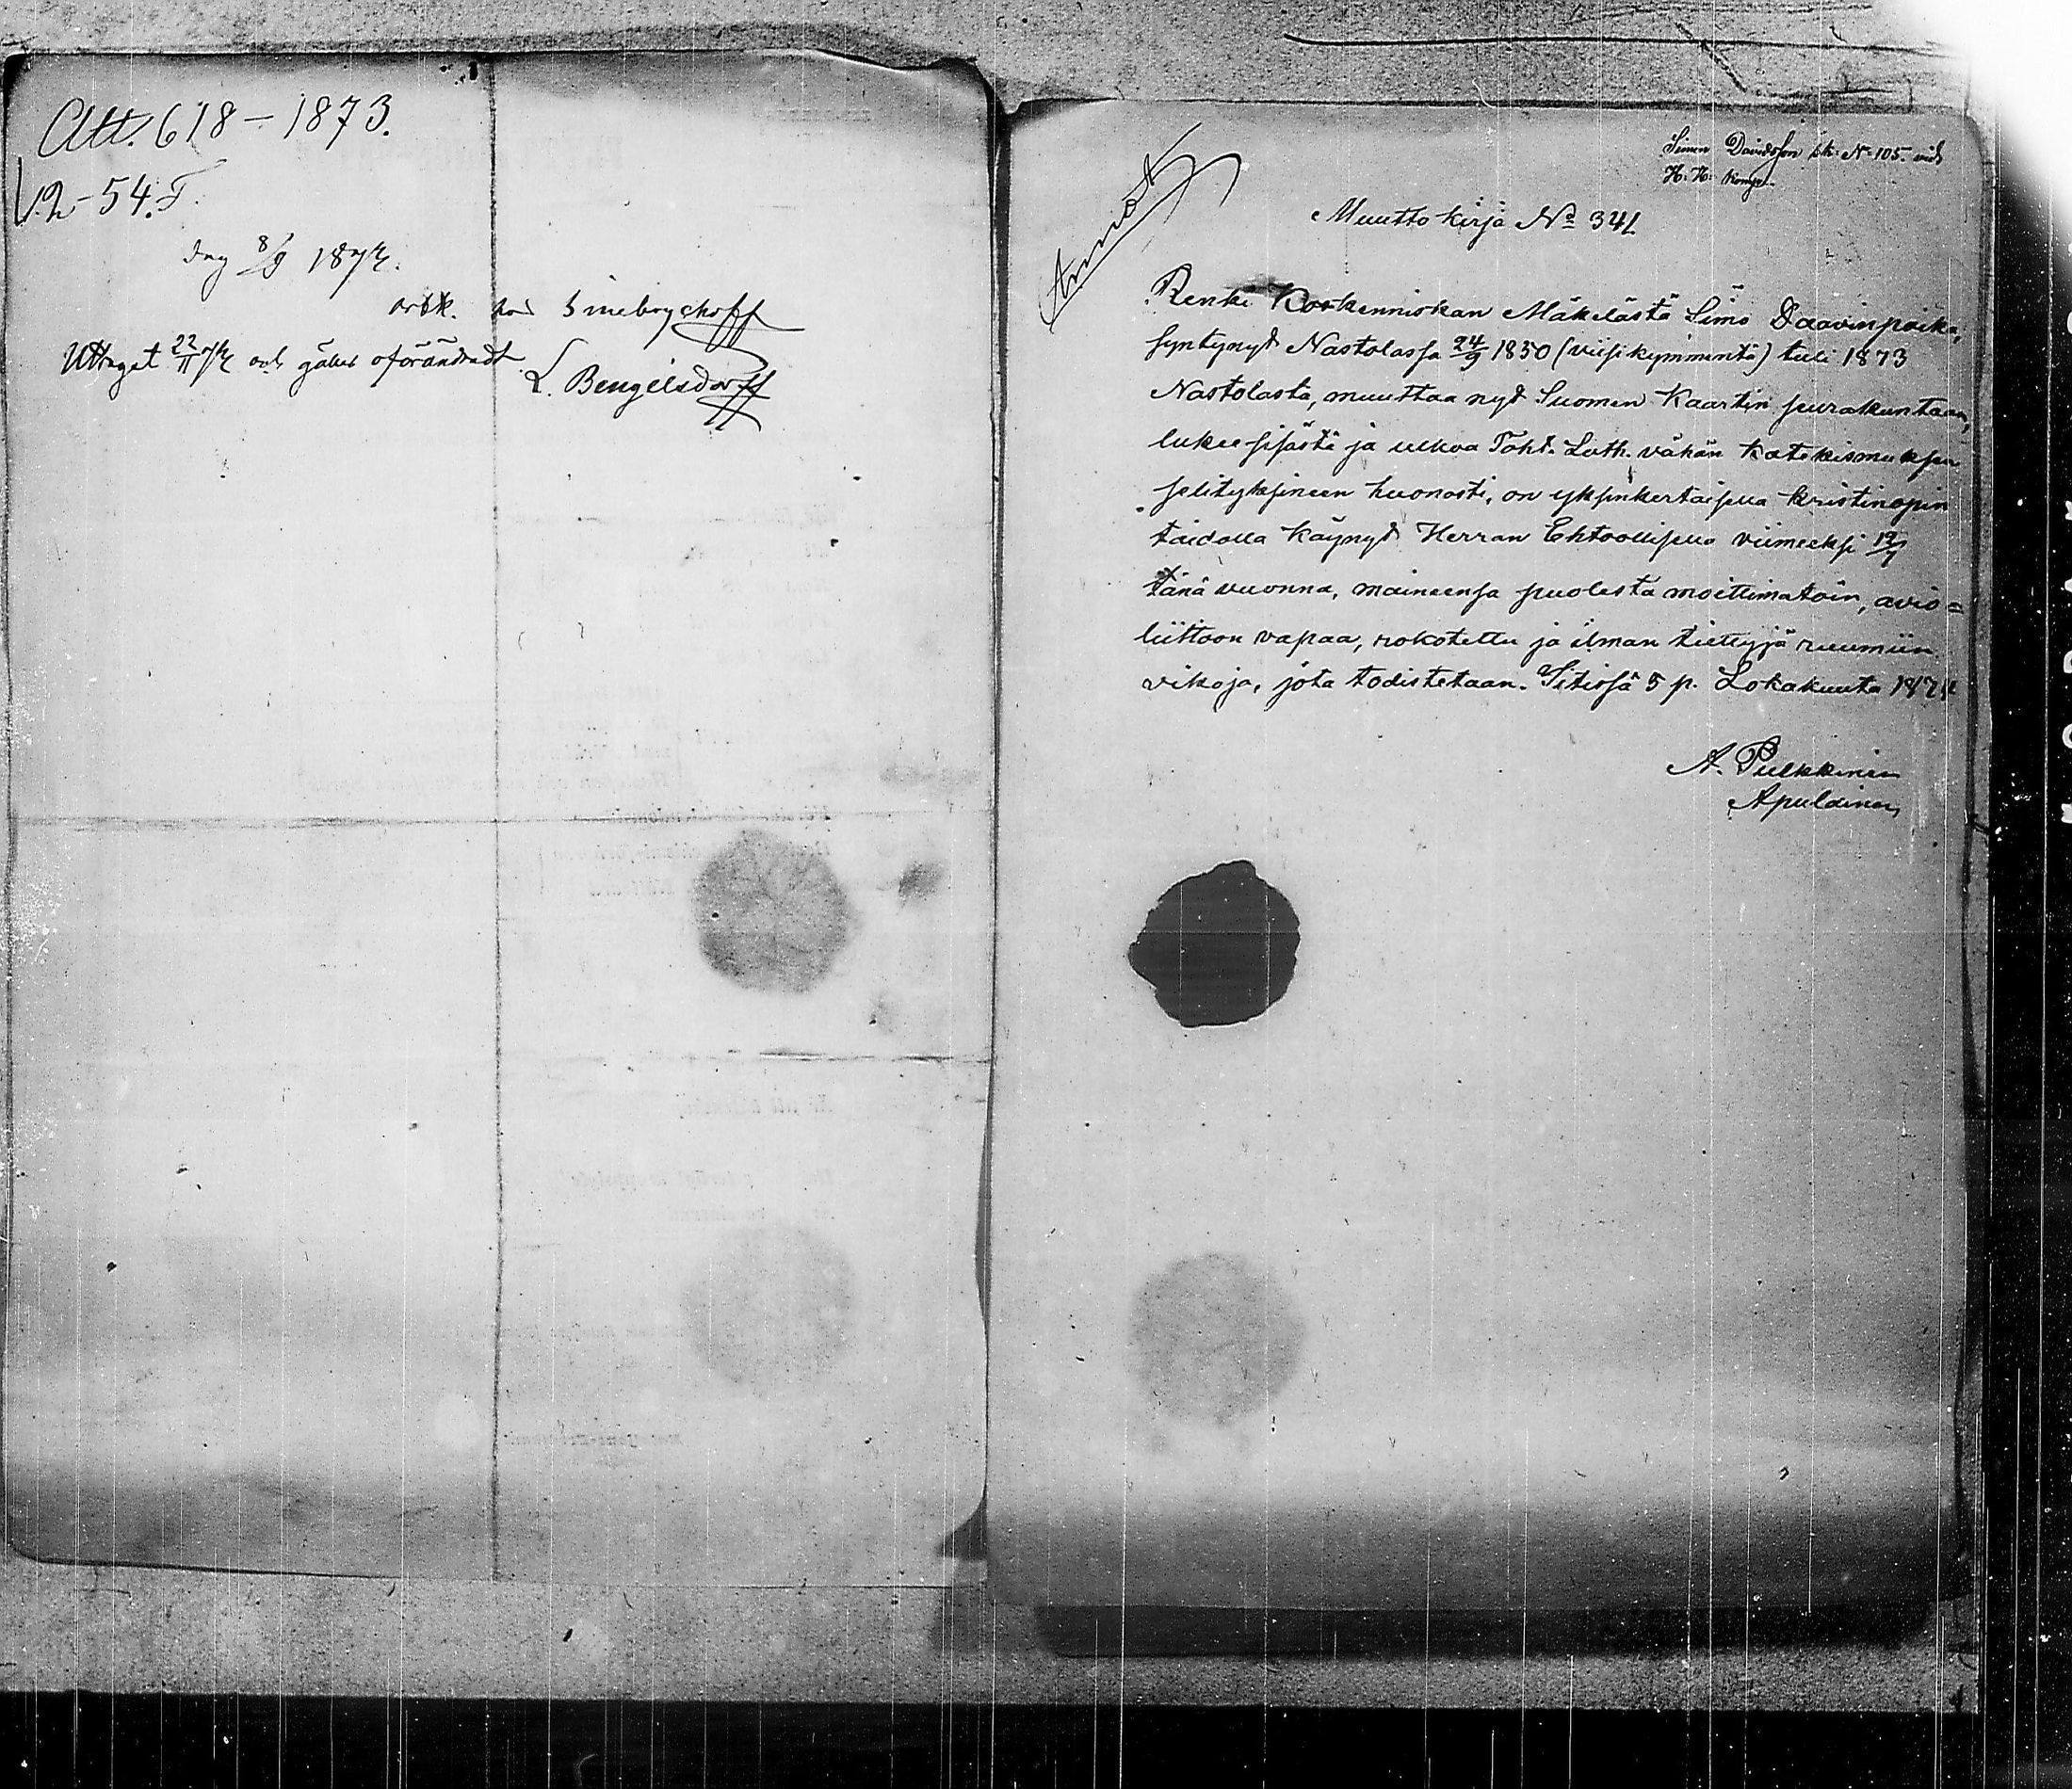 Att. 618 – 1873.
V.2 – 54. F.
dag 8/9 1874.
arbk. hos Sinebrychoff
Uttaget 22/11 74 och gäller oförändradt
L. Bengelsdorff
Simon Davidsson sk. N. 105. vid
H. H. Komp.
Muuttokirja No 341
Renki Koskenniskan Mäkelästä Simo Daavinpoika,
syntynyt Nastolassa 24/9 1850 (viisikymmentä) tuli 1873
Nastolasta, muuttaa nyt Suomen Kaartin seurakuntaan,
lukee sisästä ja ulkoa Toht. Luth. vähän katekismuksen
selityksineen huonosti, on yksinkertaisella kristinopin
taidolla käynyt Herran Ehtoollisella viimeeksi 12/7
tänä vuonna, maineensa puolesta moittimatoin, avio=
liittoon vapaa, rokotettu ja ilman tiettyjä ruumiin
vikoja, jota todistetaan. Iitissä 5 p. Lokakuuta 1874
A. Pulkkinen
Apulainen,